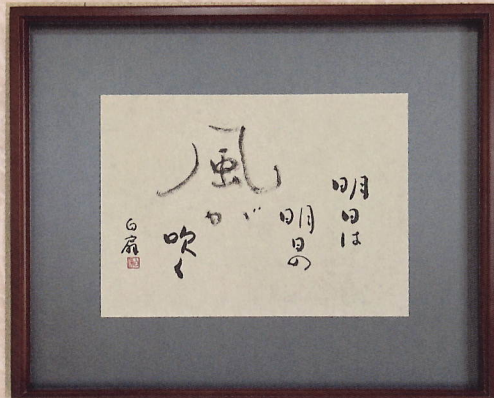 明日は
明日の
風が
吹く